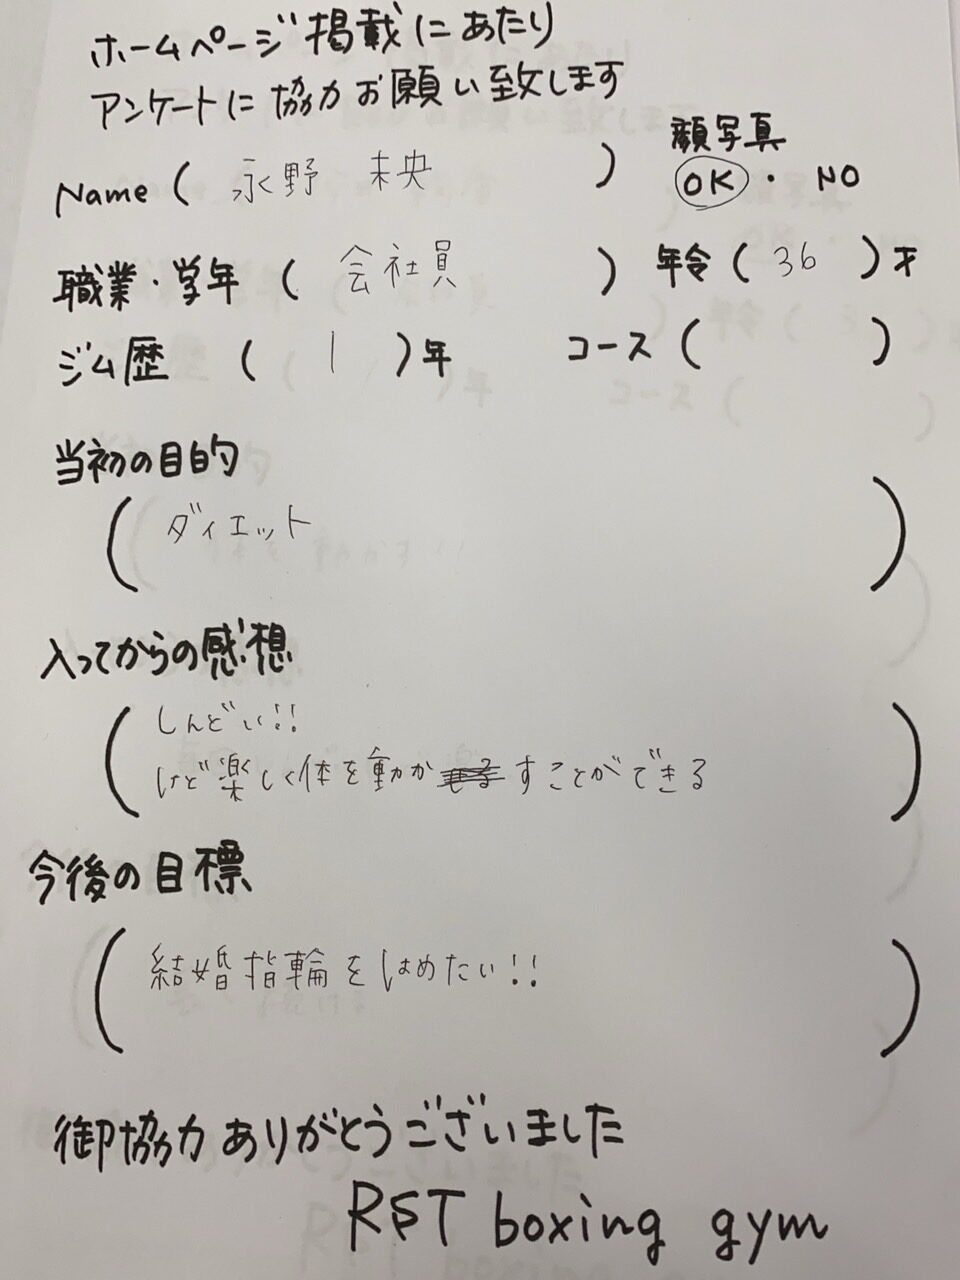 ホームページ掲載にあたり
アンケートに協力お願い致します
Name ( 永野 未央 ) 顔写真 OK・NO
職業・学年 ( 会社員 ) 年令 ( 36 ) 才
ジム歴 ( 1 ) 年 コース ( )
当初の目的
( ダイエット )
入ってからの感想
( しんどい!!
けど楽しく体を動かすことができる )
今後の目標
( 結婚指輪をはめたい!! )
御協力ありがとうございました
RST boxing gym